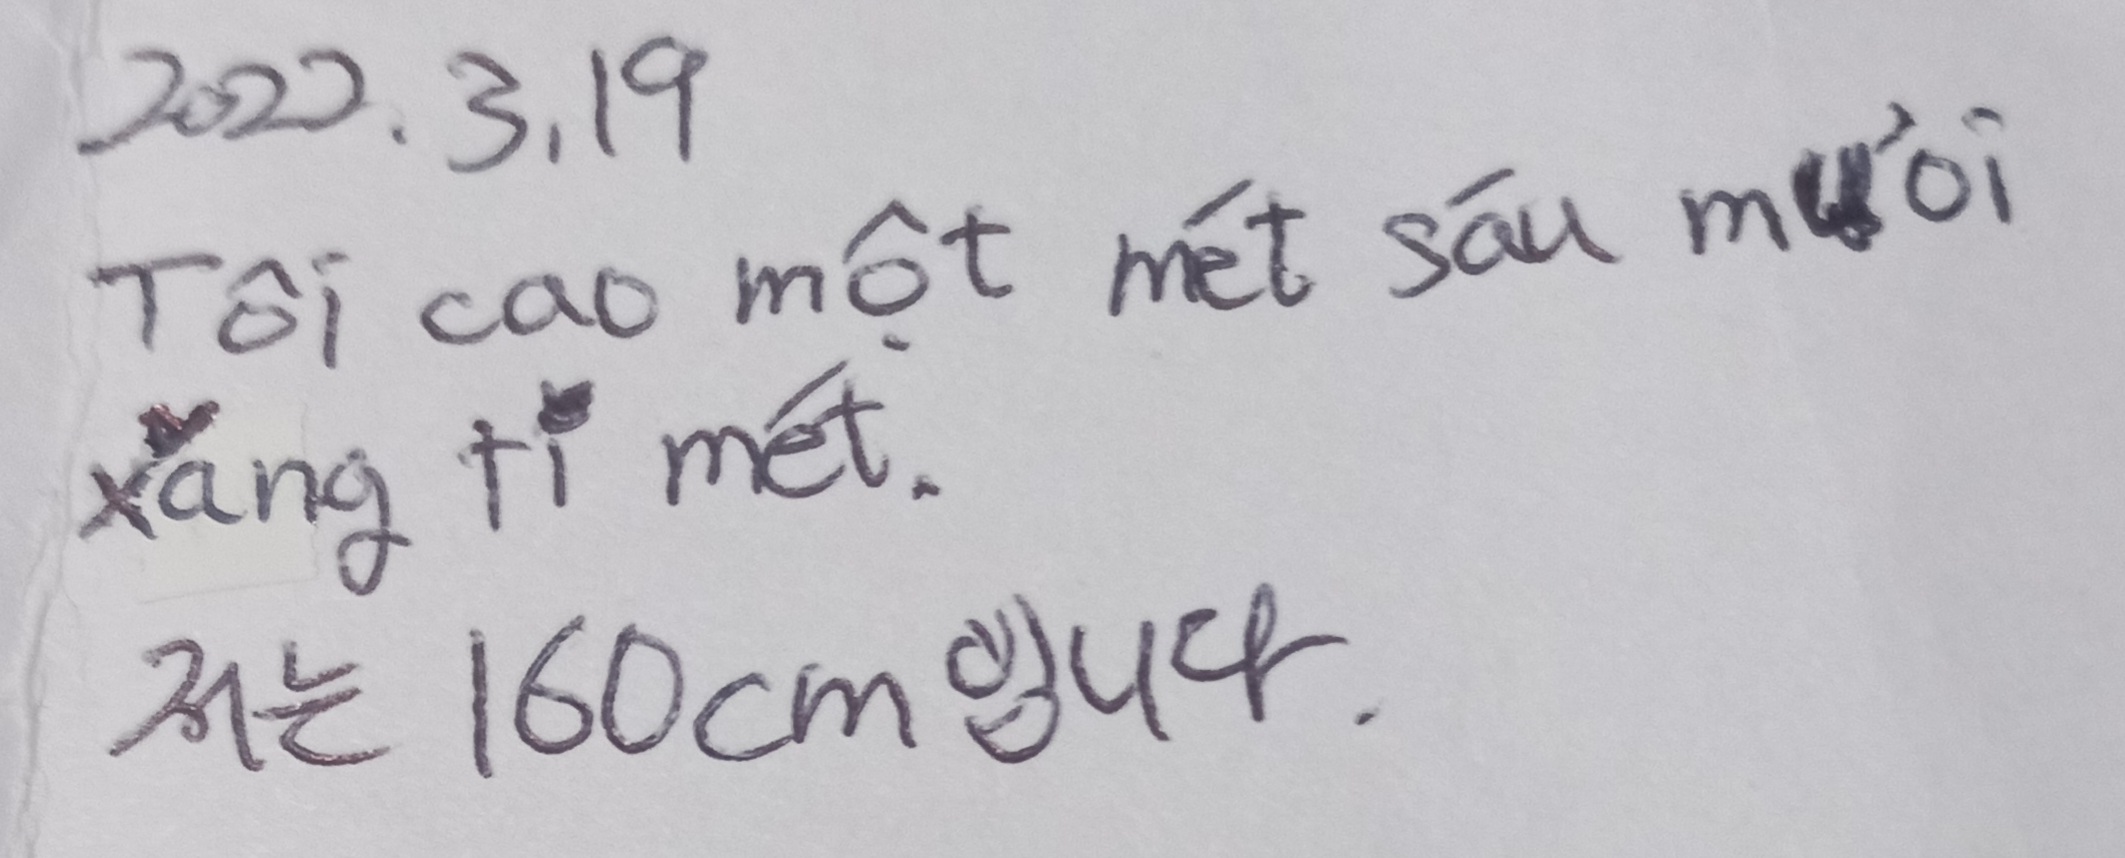 2022.3.19
Tôi cao một mét sáu mươi
xăng ti mét.
저는 160cm 입니다.